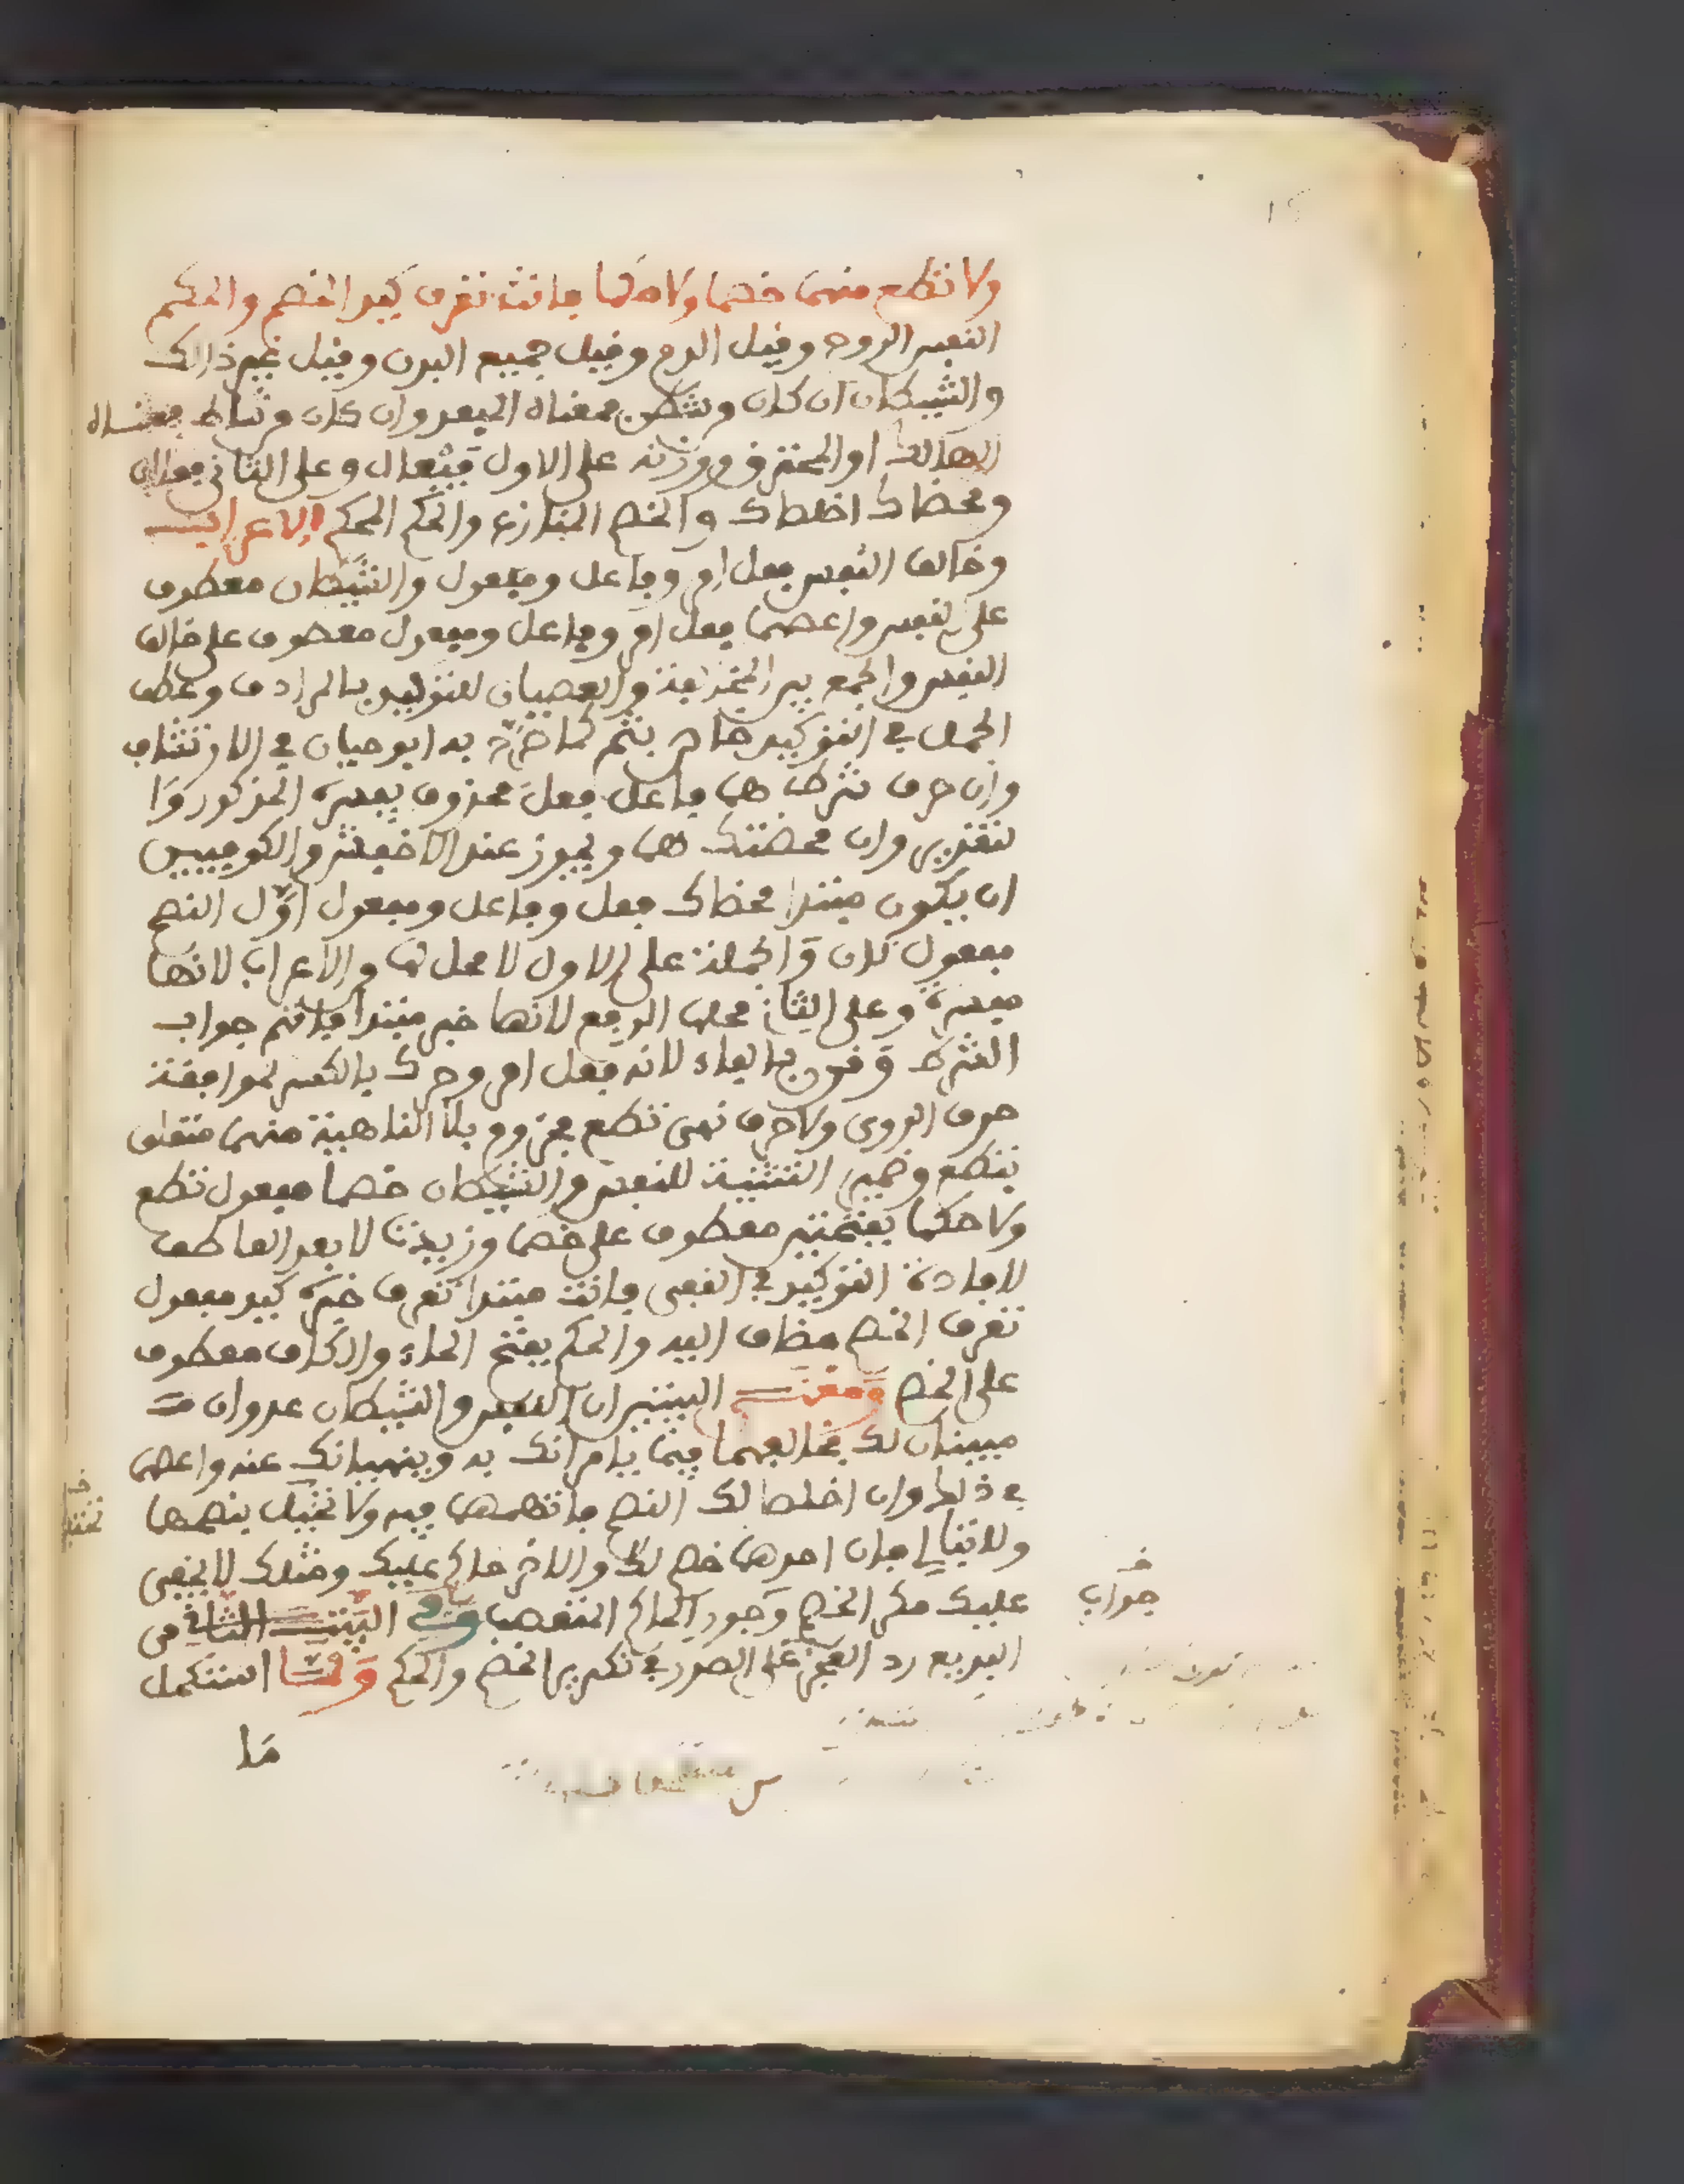 ولا تطع منهما خصما ولا حكما فانت تعرف كيد الخصم والحكم
النفس الروح وقيل الدم وقيل جميع البدن وقيل غير ذالك
والشيطان ان كان من شطن معناه البعد وان كان من شاط معناه
الهالك او المحترق ووزنه على الاول فيعال وعلى الثاني فعلان
ومحضاك اخلصاك والخصم المنازع والحكم المحكم الاعراب
وخالف النفس فعل امر وفاعل ومفعول والشيطان معطوف
على النفس واعصهما فعل امر وفاعل ومفعول معطوف على خالف
النفس والجمع بين المخالفة والعصيان للتوكيد بالمرادف وعطف
الجمل في التوكيد خاص بثم كما صرح به ابو حيان في الارتشاف
وان حرف شرط هما فاعل فعل محذوف يفسره المذكور وا
لتقدير وان محضتك هما ويجوز عند الاخفش والكوفيين
ان يكون مبتدا محضاك فعل وفاعل ومفعول اول النصح
مفعول ثان والجملة على الاول لا محل لها من الاعراب لانها
مفسرة وعلى الثاني محلها الرفع لانها خبر مبتدا فاتهم جواب
الشرط وقرن بالفاء لانه فعل امر وحرك بالكسر لموافقة
حرف الروى ولا حرف نهى تطع مجزوم بلا الناهية منهما متعلق
بتطع وضمير التثنية للنفس والشيطان خصما مفعول تطع
ولا حكما بفتحتين معطوف على خصما وزيدت لا بعد العاطف
لافادة التوكيد في النفى فانت مبتدا تعرف خبره كيد مفعول
تعرف الخصم مضاف اليه والحكم بفتح الحاء والكاف معطوف
على الخصم ومعنى البيتين ان النفس والشيطان عدوان
مبينان لك فخالفهما فيما يامرانك به وينهيانك عنه واعصهما
في ذلك وان اخلصا لك النصح فاتهمهما فيه ولا تحتفل بنصحهما
ولا تبالى فان احدهما خصم لك والاخر حاكم عليك ومثلك لا يخفى
عليك مكر الخصم وجور الحاكم المتعصب وفي البيت الثاني من
البديع رد العجز على الصدر في تكرير الخصم والحكم ولما استكمل
ما
جواب